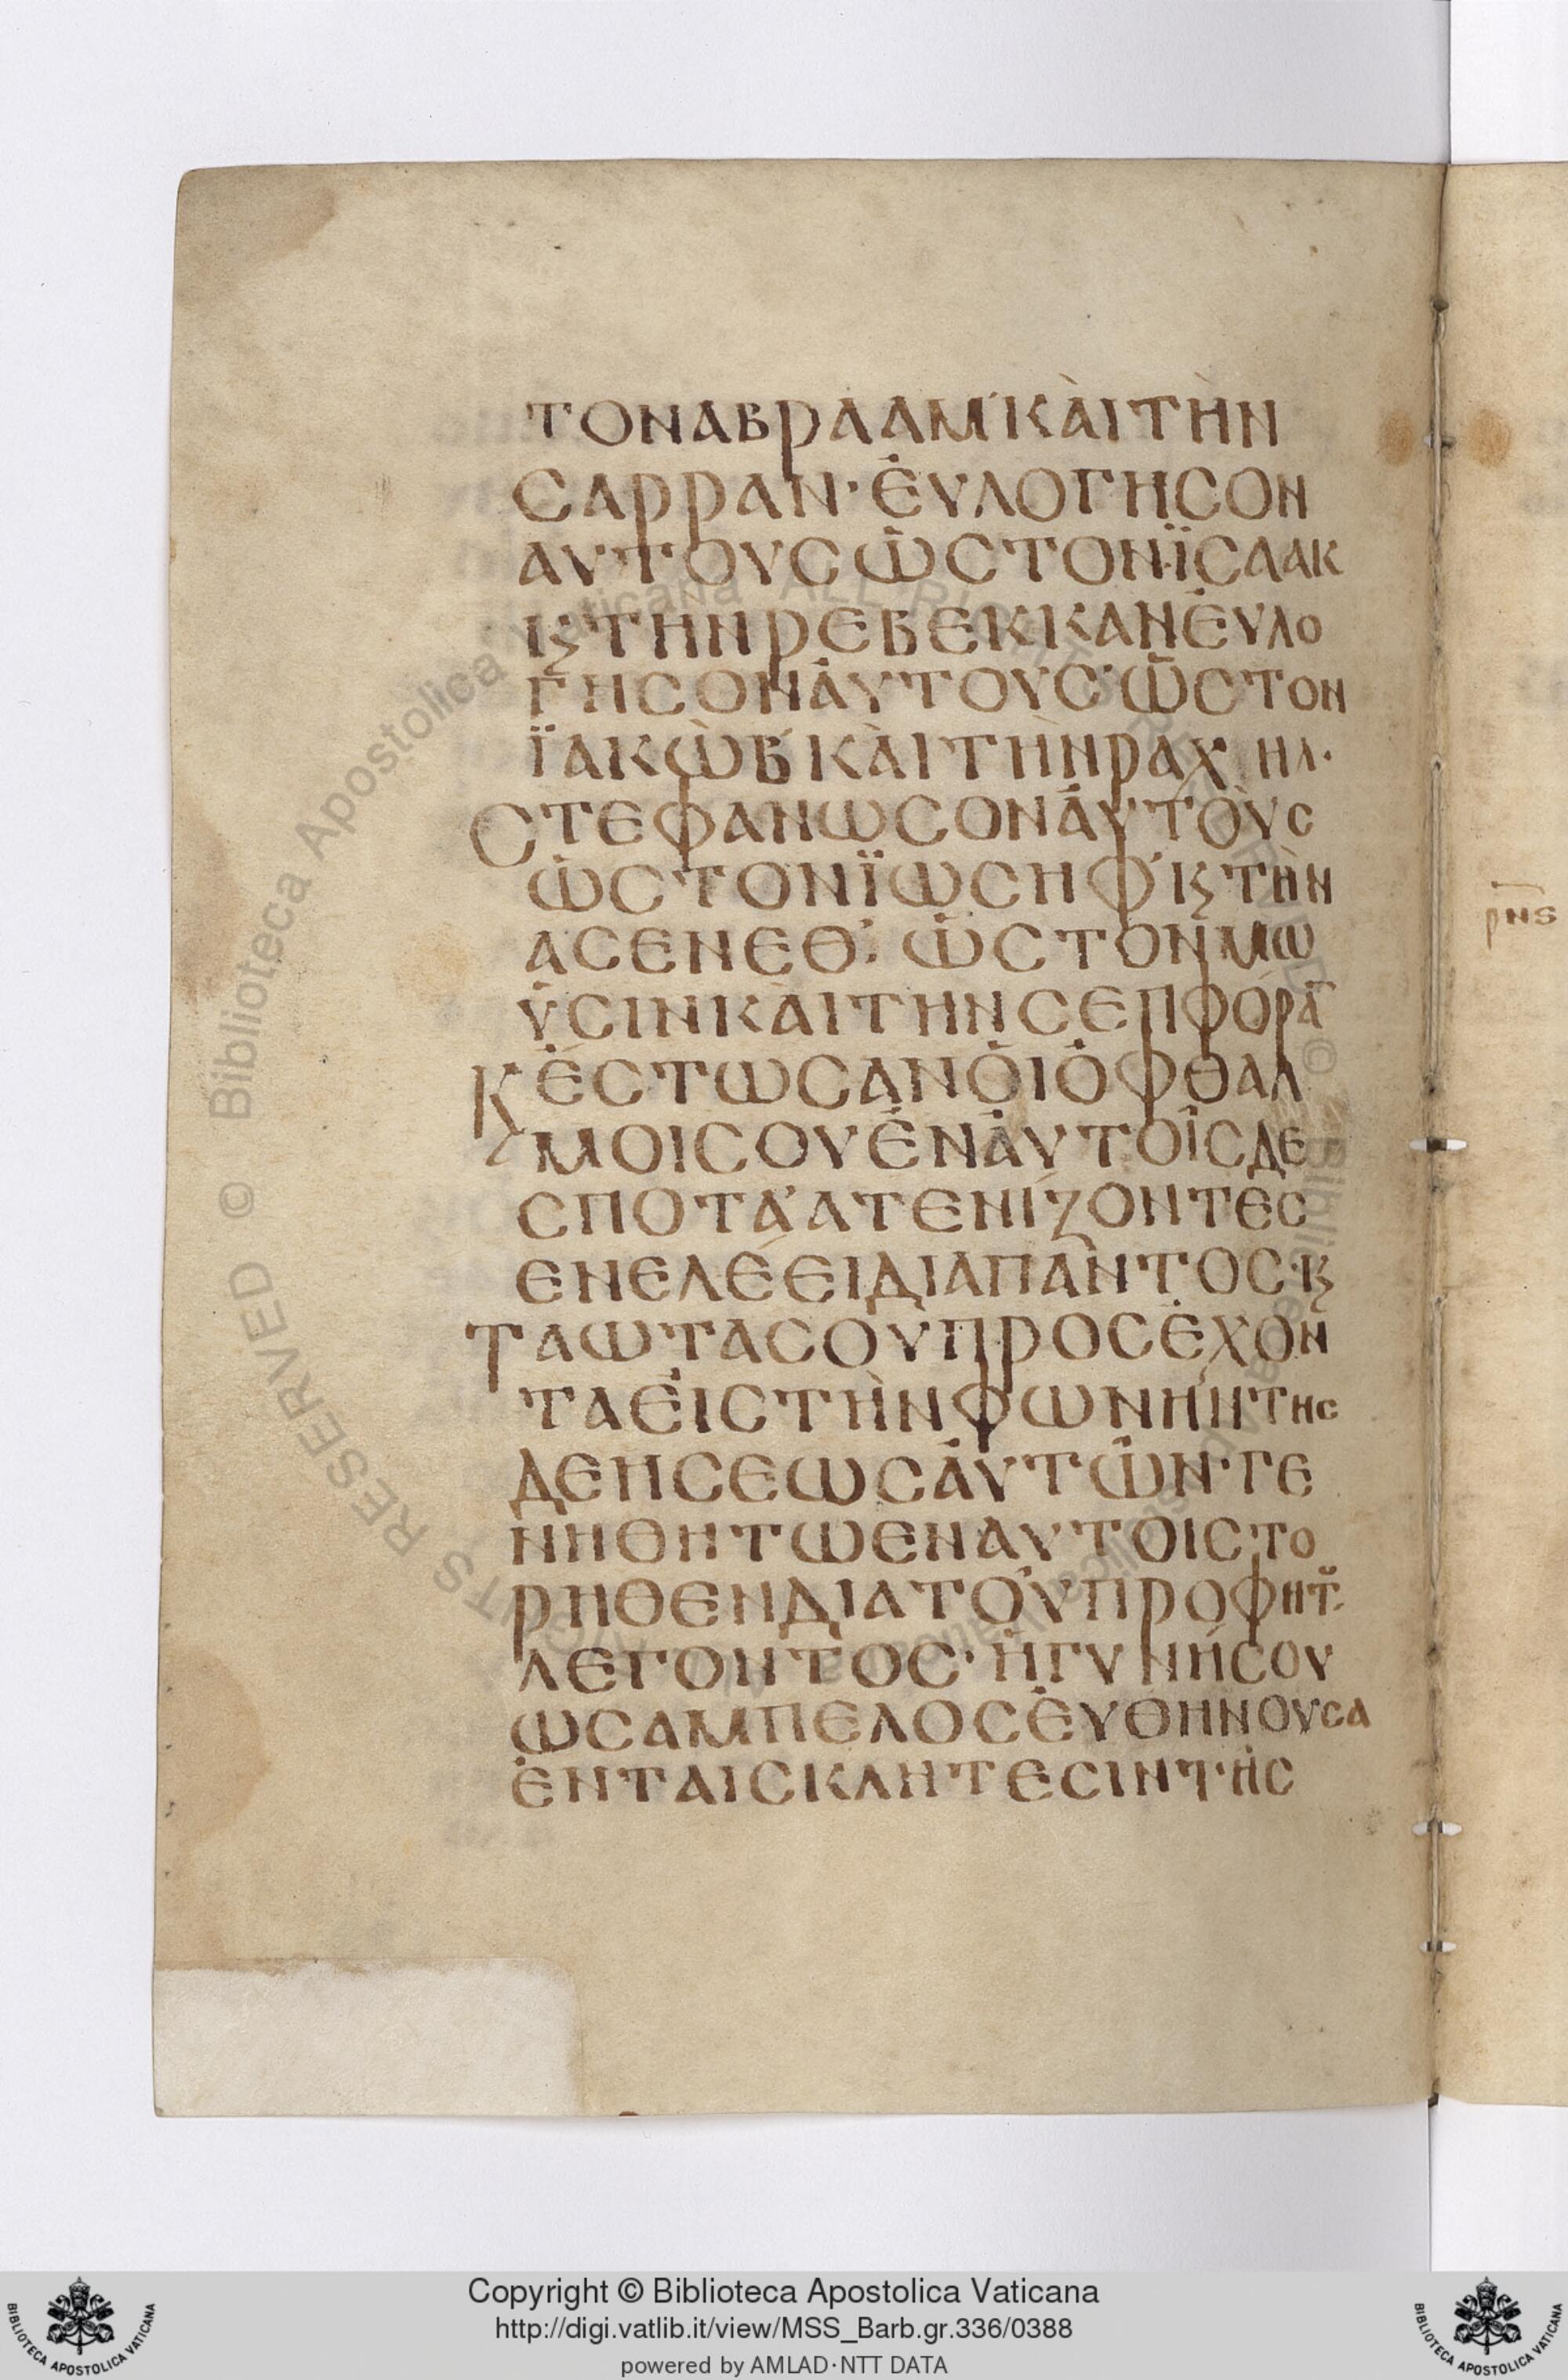 ΤΟΝΑΒΡΑΑΜ᾽ΚᾺΙΤῊΝ
ϹΑΡΡΑΝ·ἘΥΛΟΓΗϹΟΝ
ΑΥΤΟΥϹὩϹΤΟΝΪϹΑΑΚ
ΚϚΤΗΝΡΕΒΕΚΚΑΝἘΥΛΟ
ΓΗϹΟΝἈΥΤΟΥϹ·ὩϹΤΟΝ
ΪΑΚῺΒ᾽ΚᾺΙΤῊΝΡΑΧΗΛ·
ϹΤΕΦΑΝΩϹΟΝἈΥΤΟῪϹ
ὩϹΤΟΝΪΩϹΗΦ᾽ΚϚΤῊΝ
ΑϹΕΝΕΘ᾽· ὩϹΤΟΝΜΩ
ΫϹΙΝΚᾺΙΤΗΝϹΕΠΦΟΡΑ̅
ΚἜϹΤΩϹΑΝὉΙὈΦΘΑΛ
ΜΟΙϹΟΥἘΝἈΥΤΟΙ͂ϹΔΕ
ϹΠΟΤΑ᾽ΑΤΕΝΊΖΟΝΤΕϹ
ΕΝΕΛΈΕΙΔΙΑΠΑΝΤΟϹ·ΚϚ
ΤΑΩΤΑϹΟΥΠΡΟϹἘΧΟΝ
ΤΑἘΙϹΤῊΝΦΩΝΗΝΤΗϹ
ΔΕΗϹΕΩϹἈΥΤΩ͂Ν·ΓΕ
ΝΗΘΗΤΩΕΝΑΥΤΟΙϹΤΟ
ΡΗΘΕΝΔΙΑΤΟΥ͂ΠΡΟΦΗΤ
ΛΕΓΟΝΤΟϹ·ἩΓΥΝΉϹΟΥ
ΩϹΑΜΠΕΛΟϹἘΥΘΗΝΟΥϹΑ
ἘΝΤΑΙϹΚΛΗΤΕϹΙΝΤΗ͂Ϲ
Copyright © Biblioteca Apostolica Vaticana
http://digi.vatlib.it/view/MSS_Barb.gr.336/0388
powered by AMLAD·NTT DATA
BIBLIOTECA APOSTOLICA VATICANA
BIBLIOTECA APOSTOLICA VATICANA